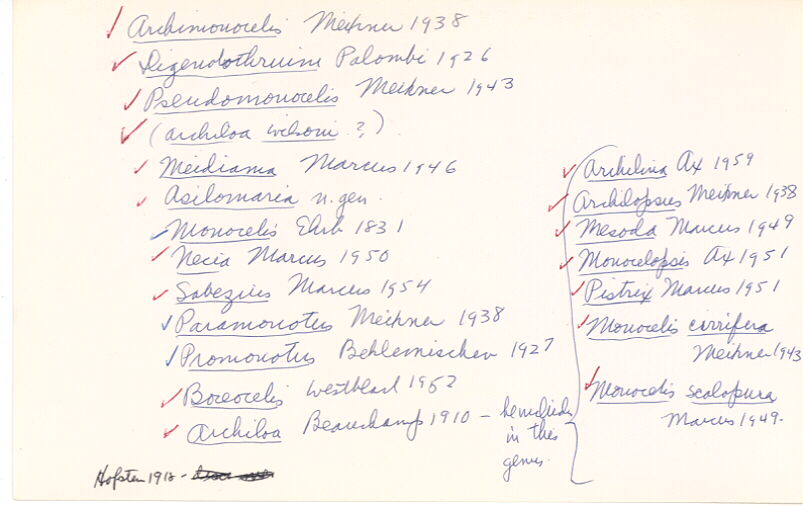 Archimonocelis Meixner 1938
Digenobothrium Palombi 1926
Pseudomonocelis Meixner 1943
(archiloa wilsoni ?)
Meidiama Marcus 1946
Asilomaria n. gen.
Monocelis Ehrb 1831
Necia Marcus 1950
Sabezius Marcus 1954
Paramonotus Meixner 1938
Promonotus Beklemischev 1927
Boreocelis Westblad 1952
Archiloa Beauchamp 1910 - he includes
in this
genus.
Archilina Ax 1959
Archilopsis Meixner 1938
Mesoda Marcus 1949
Monocelopsis Ax 1951
Pistrix Marcus 1951
Monocelis cirrifera
Meixner 1943
Monocelis scalopura
Marcus 1949.
Hofsten 1918 -